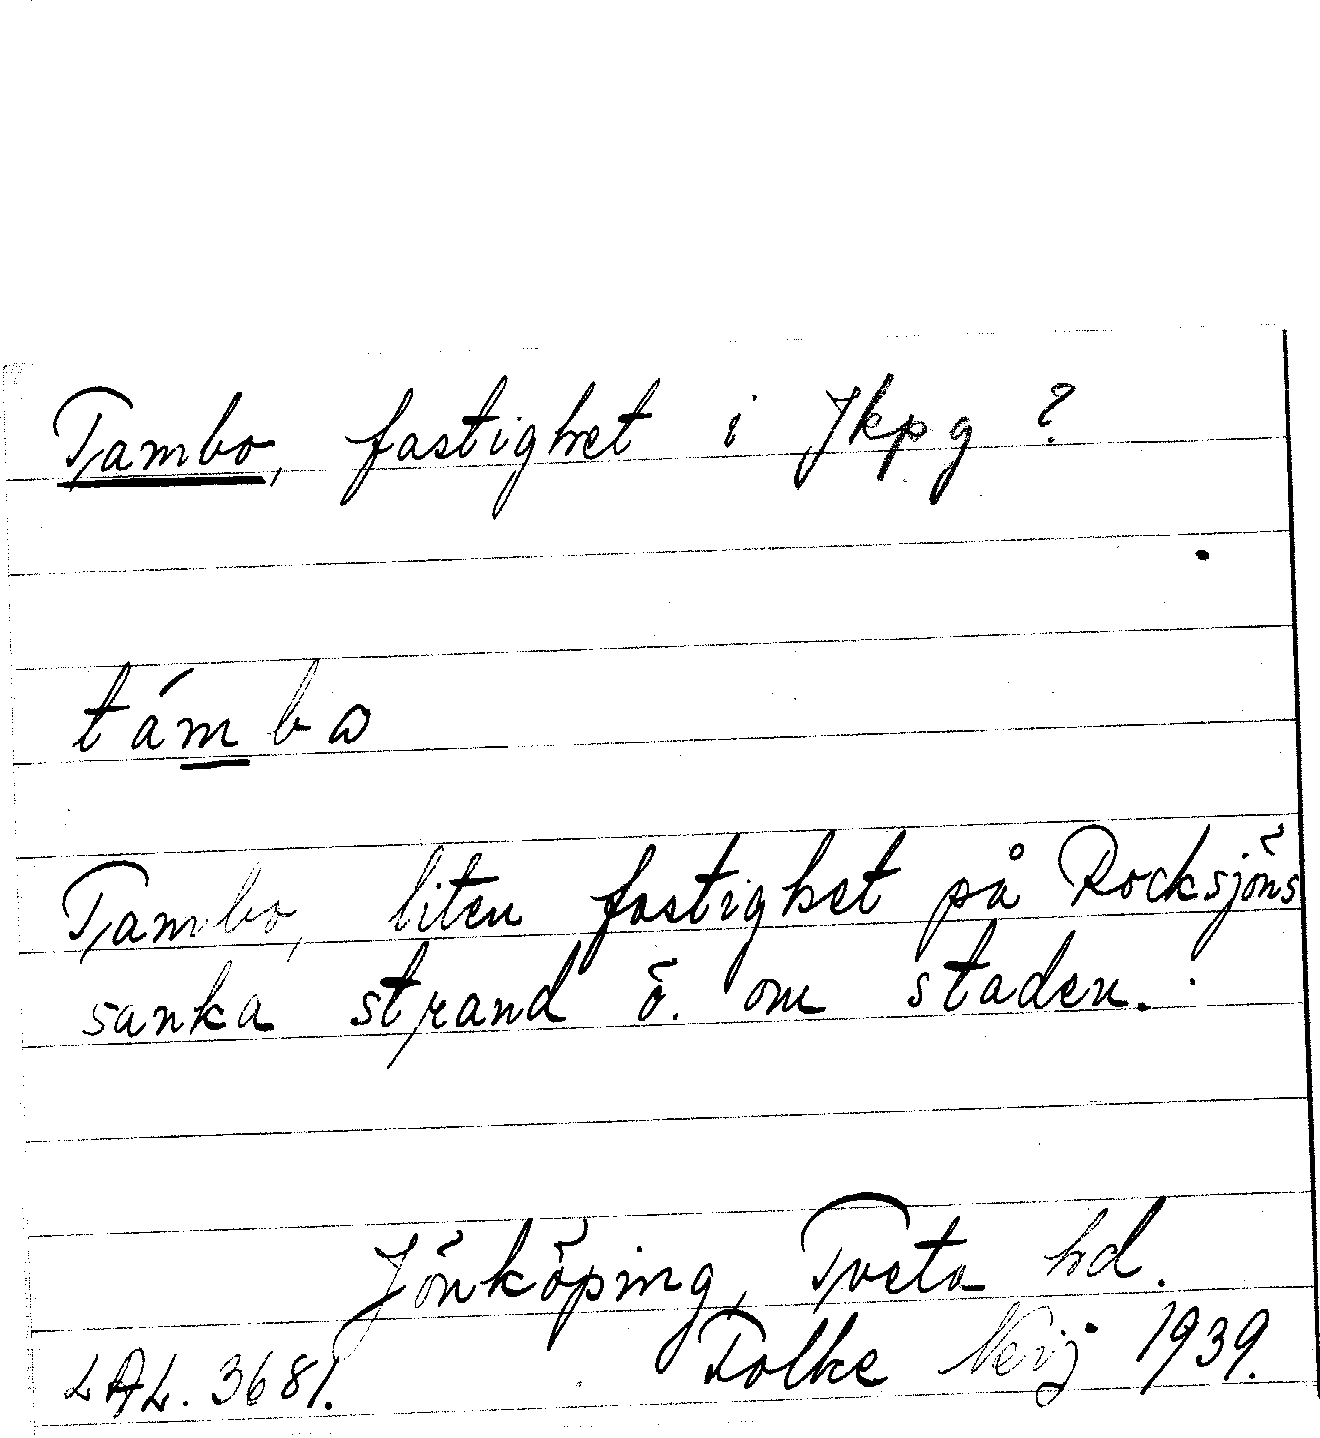 Tambo, fastighet i Jkpg ?
támbω
Tambo, liten fastighet på Rocksjöns
sanka strand ö. om staden.
Jönköping, Tveta hd.
LAL. 3681. Folke Neij 1939.